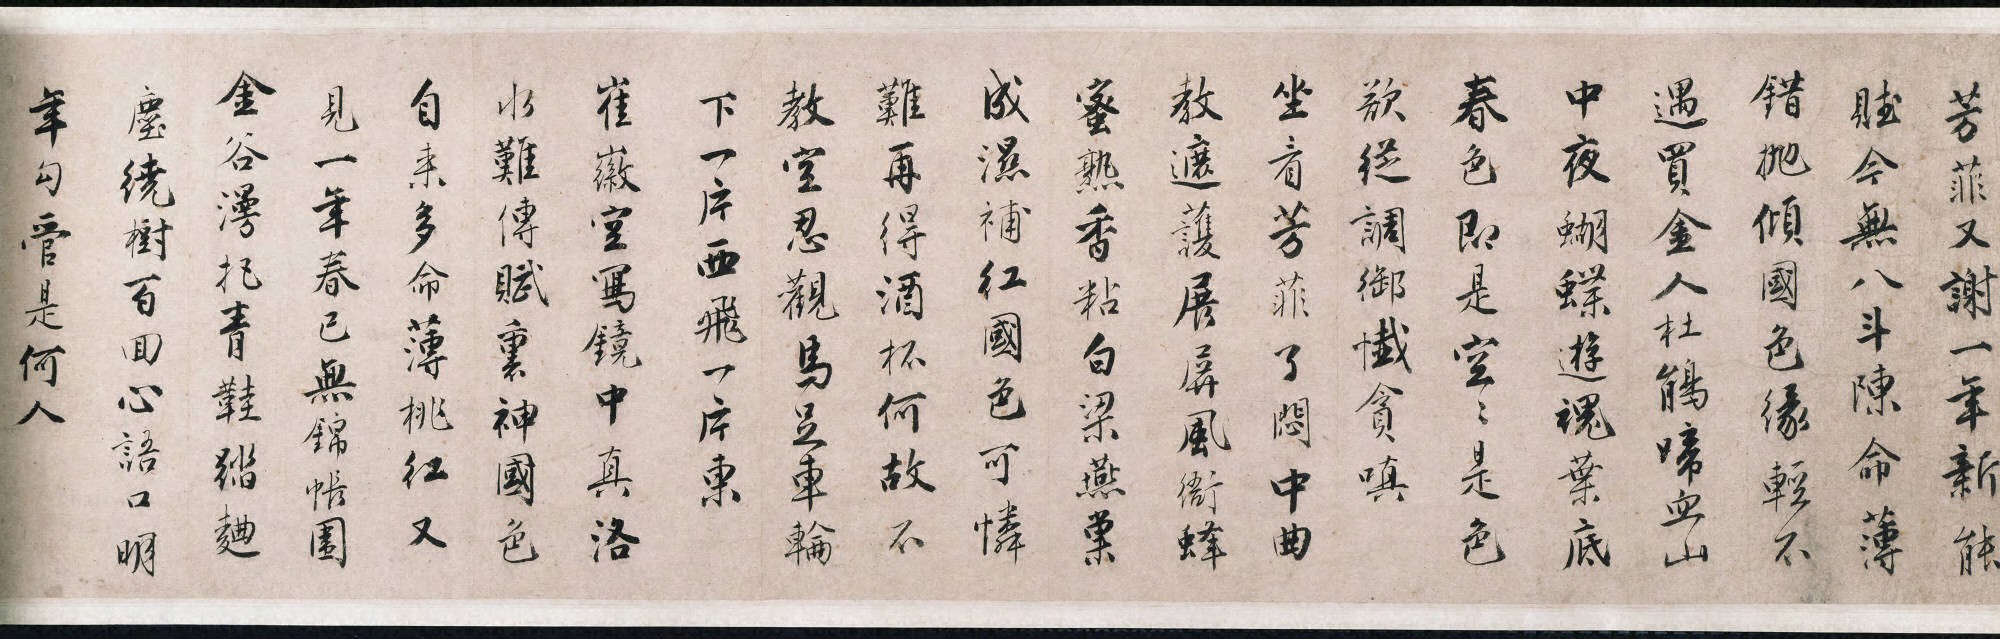 芳菲又謝一年新能
賦今無八斗陳命薄
錯抛傾國色緣輕不
遇買金人杜鵑啼血山
中夜蝴蝶遊魂葉底
春色即是空〻是色
欲從調御懺貪嗔
坐看芳菲了悶中曲
教遮護展屏風銜蜂
蜜熟香粘白梁燕巢
成濕補紅國色可憐
難再得酒杯何故不
教空忍觀馬足車輪
下一片西飛一片東
崔徽空寫鏡中真洛
水難傳賦裏神國色
自来多命薄桃紅又
見一年春已無錦帳圍
金谷漫把青鞋踏麯
塵繞樹百回心語口明
年勾管是何人